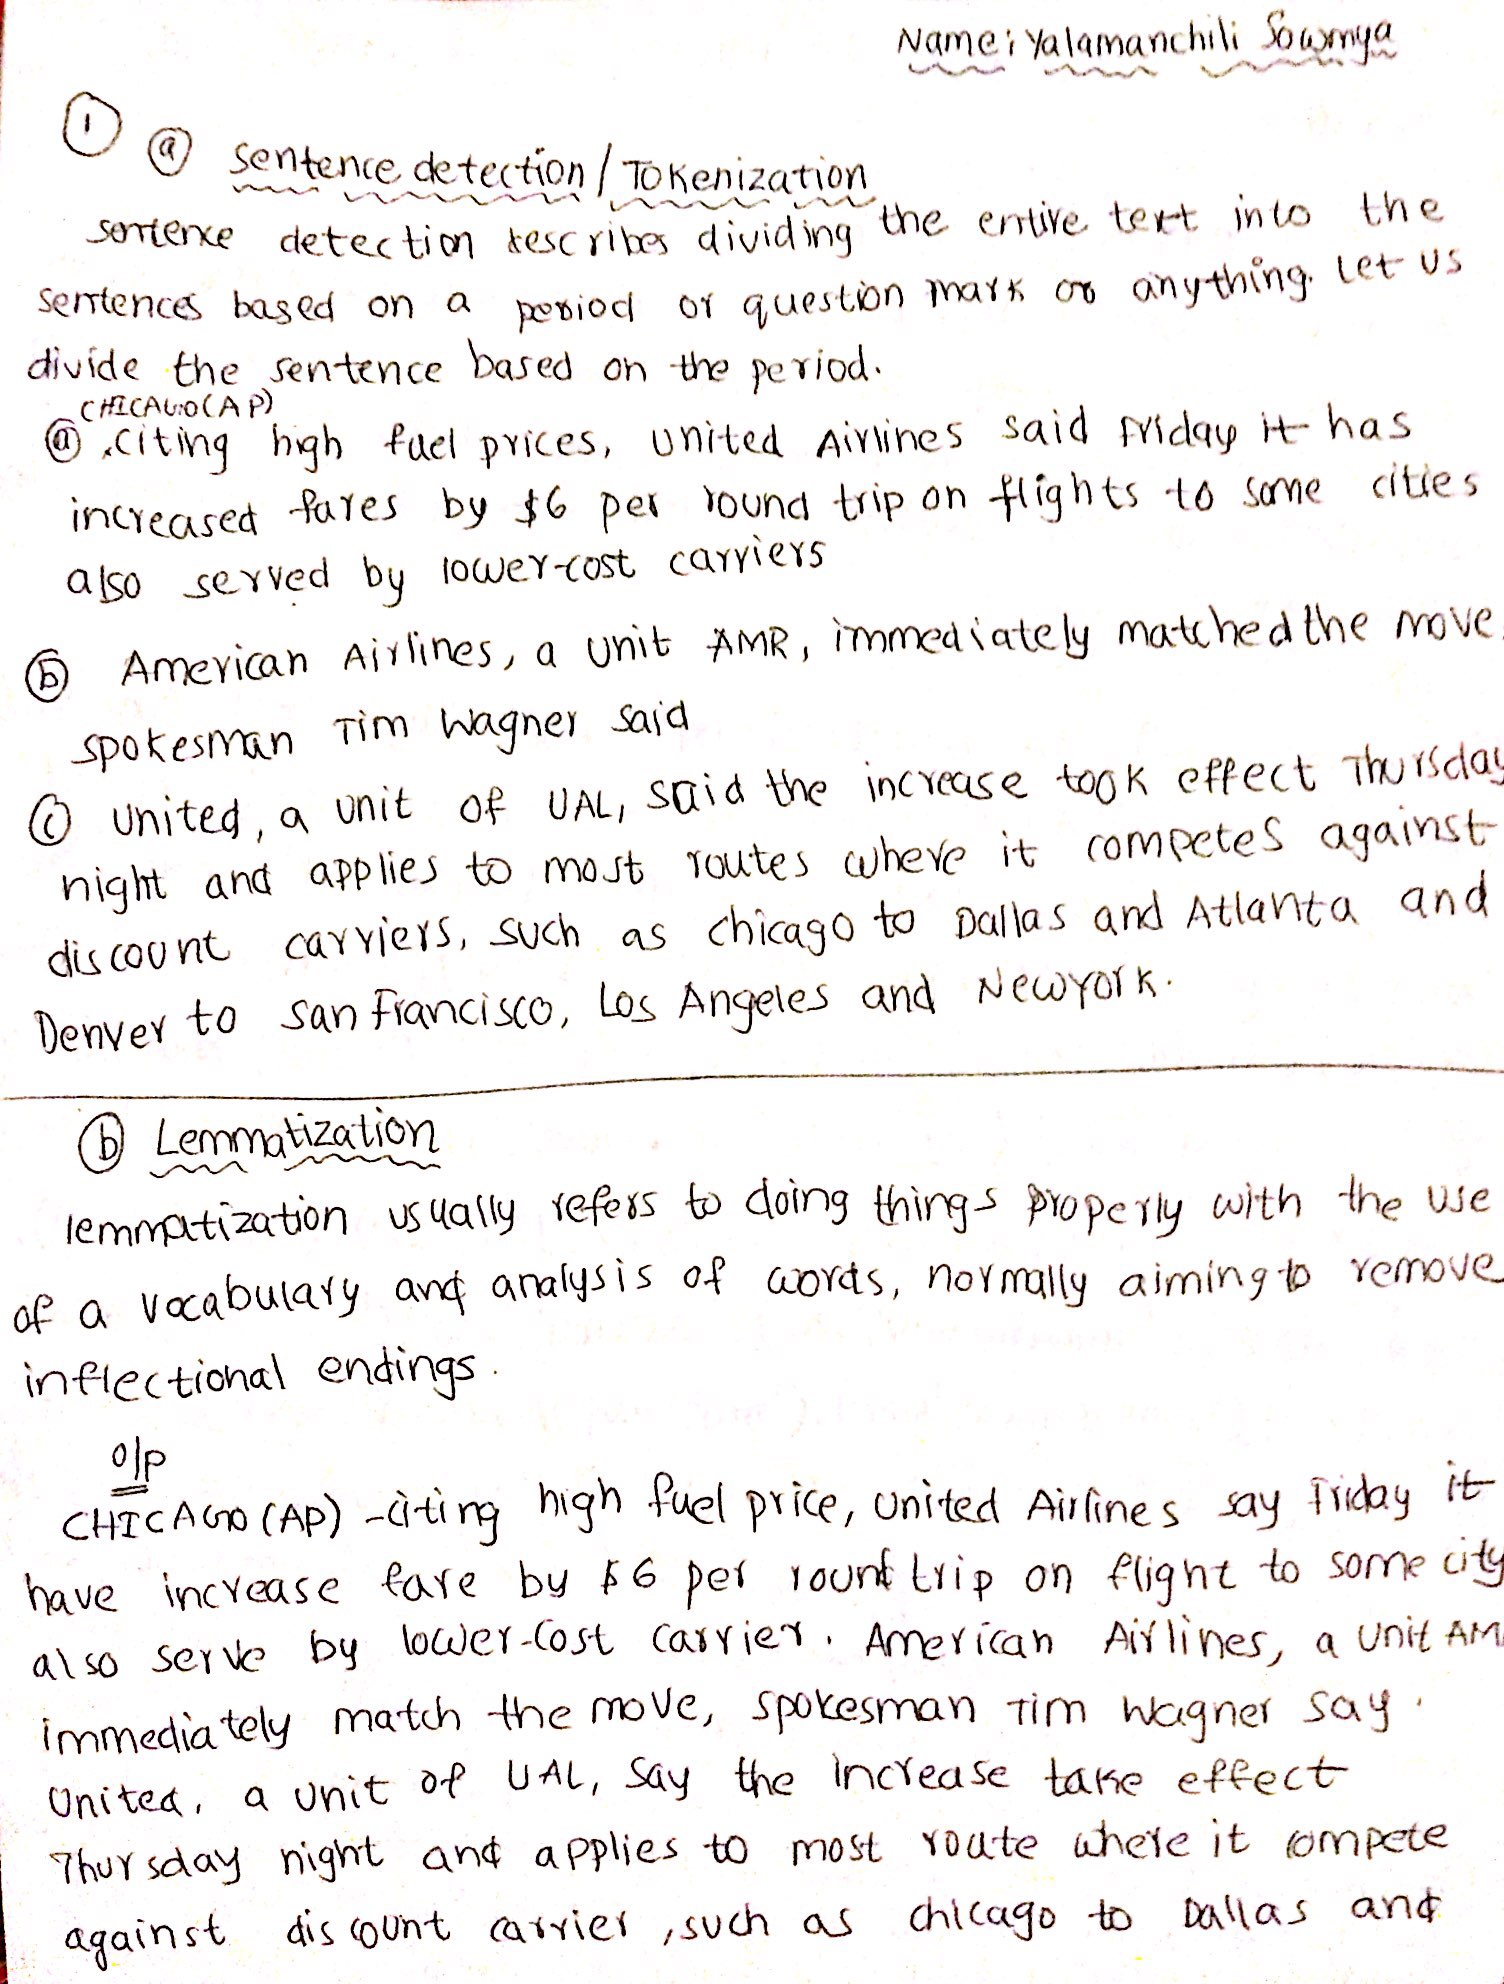 Name: Yalamanchili Sowmya
1
a Sentence detection / Tokenization
sentence detection describes dividing the entire text into the
sentences based on a period or question mark or anything. Let us
divide the sentence based on the period.
CHICAGO (AP)
a citing high fuel prices, united Airlines said Friday it has
increased fares by $6 per round trip on flights to some cities
also served by lower-cost carriers
b American Airlines, a unit AMR, immediately matched the move,
spokesman Tim Wagner said
c United, a unit of UAL, said the increase took effect Thursday
night and applies to most routes where it competes against
discount carriers, such as chicago to Dallas and Atlanta and
Denver to San Francisco, Los Angeles and Newyork.
b Lemmatization
lemmatization usually refers to doing things properly with the use
of a vocabulary and analysis of words, normally aiming to remove
inflectional endings.
o/p
CHICAGO (AP) - citing high fuel price, united Airlines say Friday it
have increase fare by $6 per round trip on flight to some city
also serve by lower-cost carrier. American Airlines, a unit AM
immediately match the move, spokesman Tim Wagner say.
United, a unit of UAL, say the increase take effect
Thursday night and applies to most route where it compete
against discount carrier, such as chicago to Dallas and